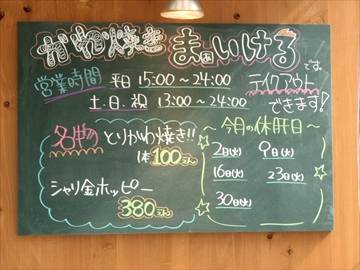 かわ焼き まぁいける では、
営業時間 平日 15:00~24:00
土・日・祝 13:00~24:00
テイクアウト
できます!
名物 とりかわ焼き!!
1本100えん
シャリ金ホッピー
380えん
~今月の休肝日~
2日(火) 9日(火)
16日(火) 23日(火)
30日(火)